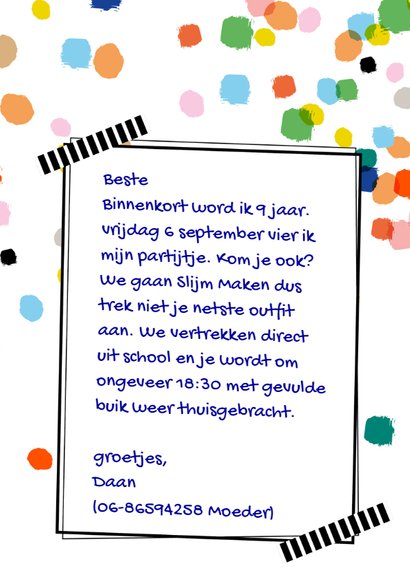 Beste
Binnenkort word ik 9 jaar.
vrijdag 6 september vier ik
mijn partijtje. Kom je ook?
We gaan Slijm Maken dus
trek niet je netste outfit
aan. We vertrekken direct
uit school en je wordt om
ongeveer 18:30 met gevulde
buik weer thuisgebracht.

groetjes,
Daan
(06-86594258 Moeder)